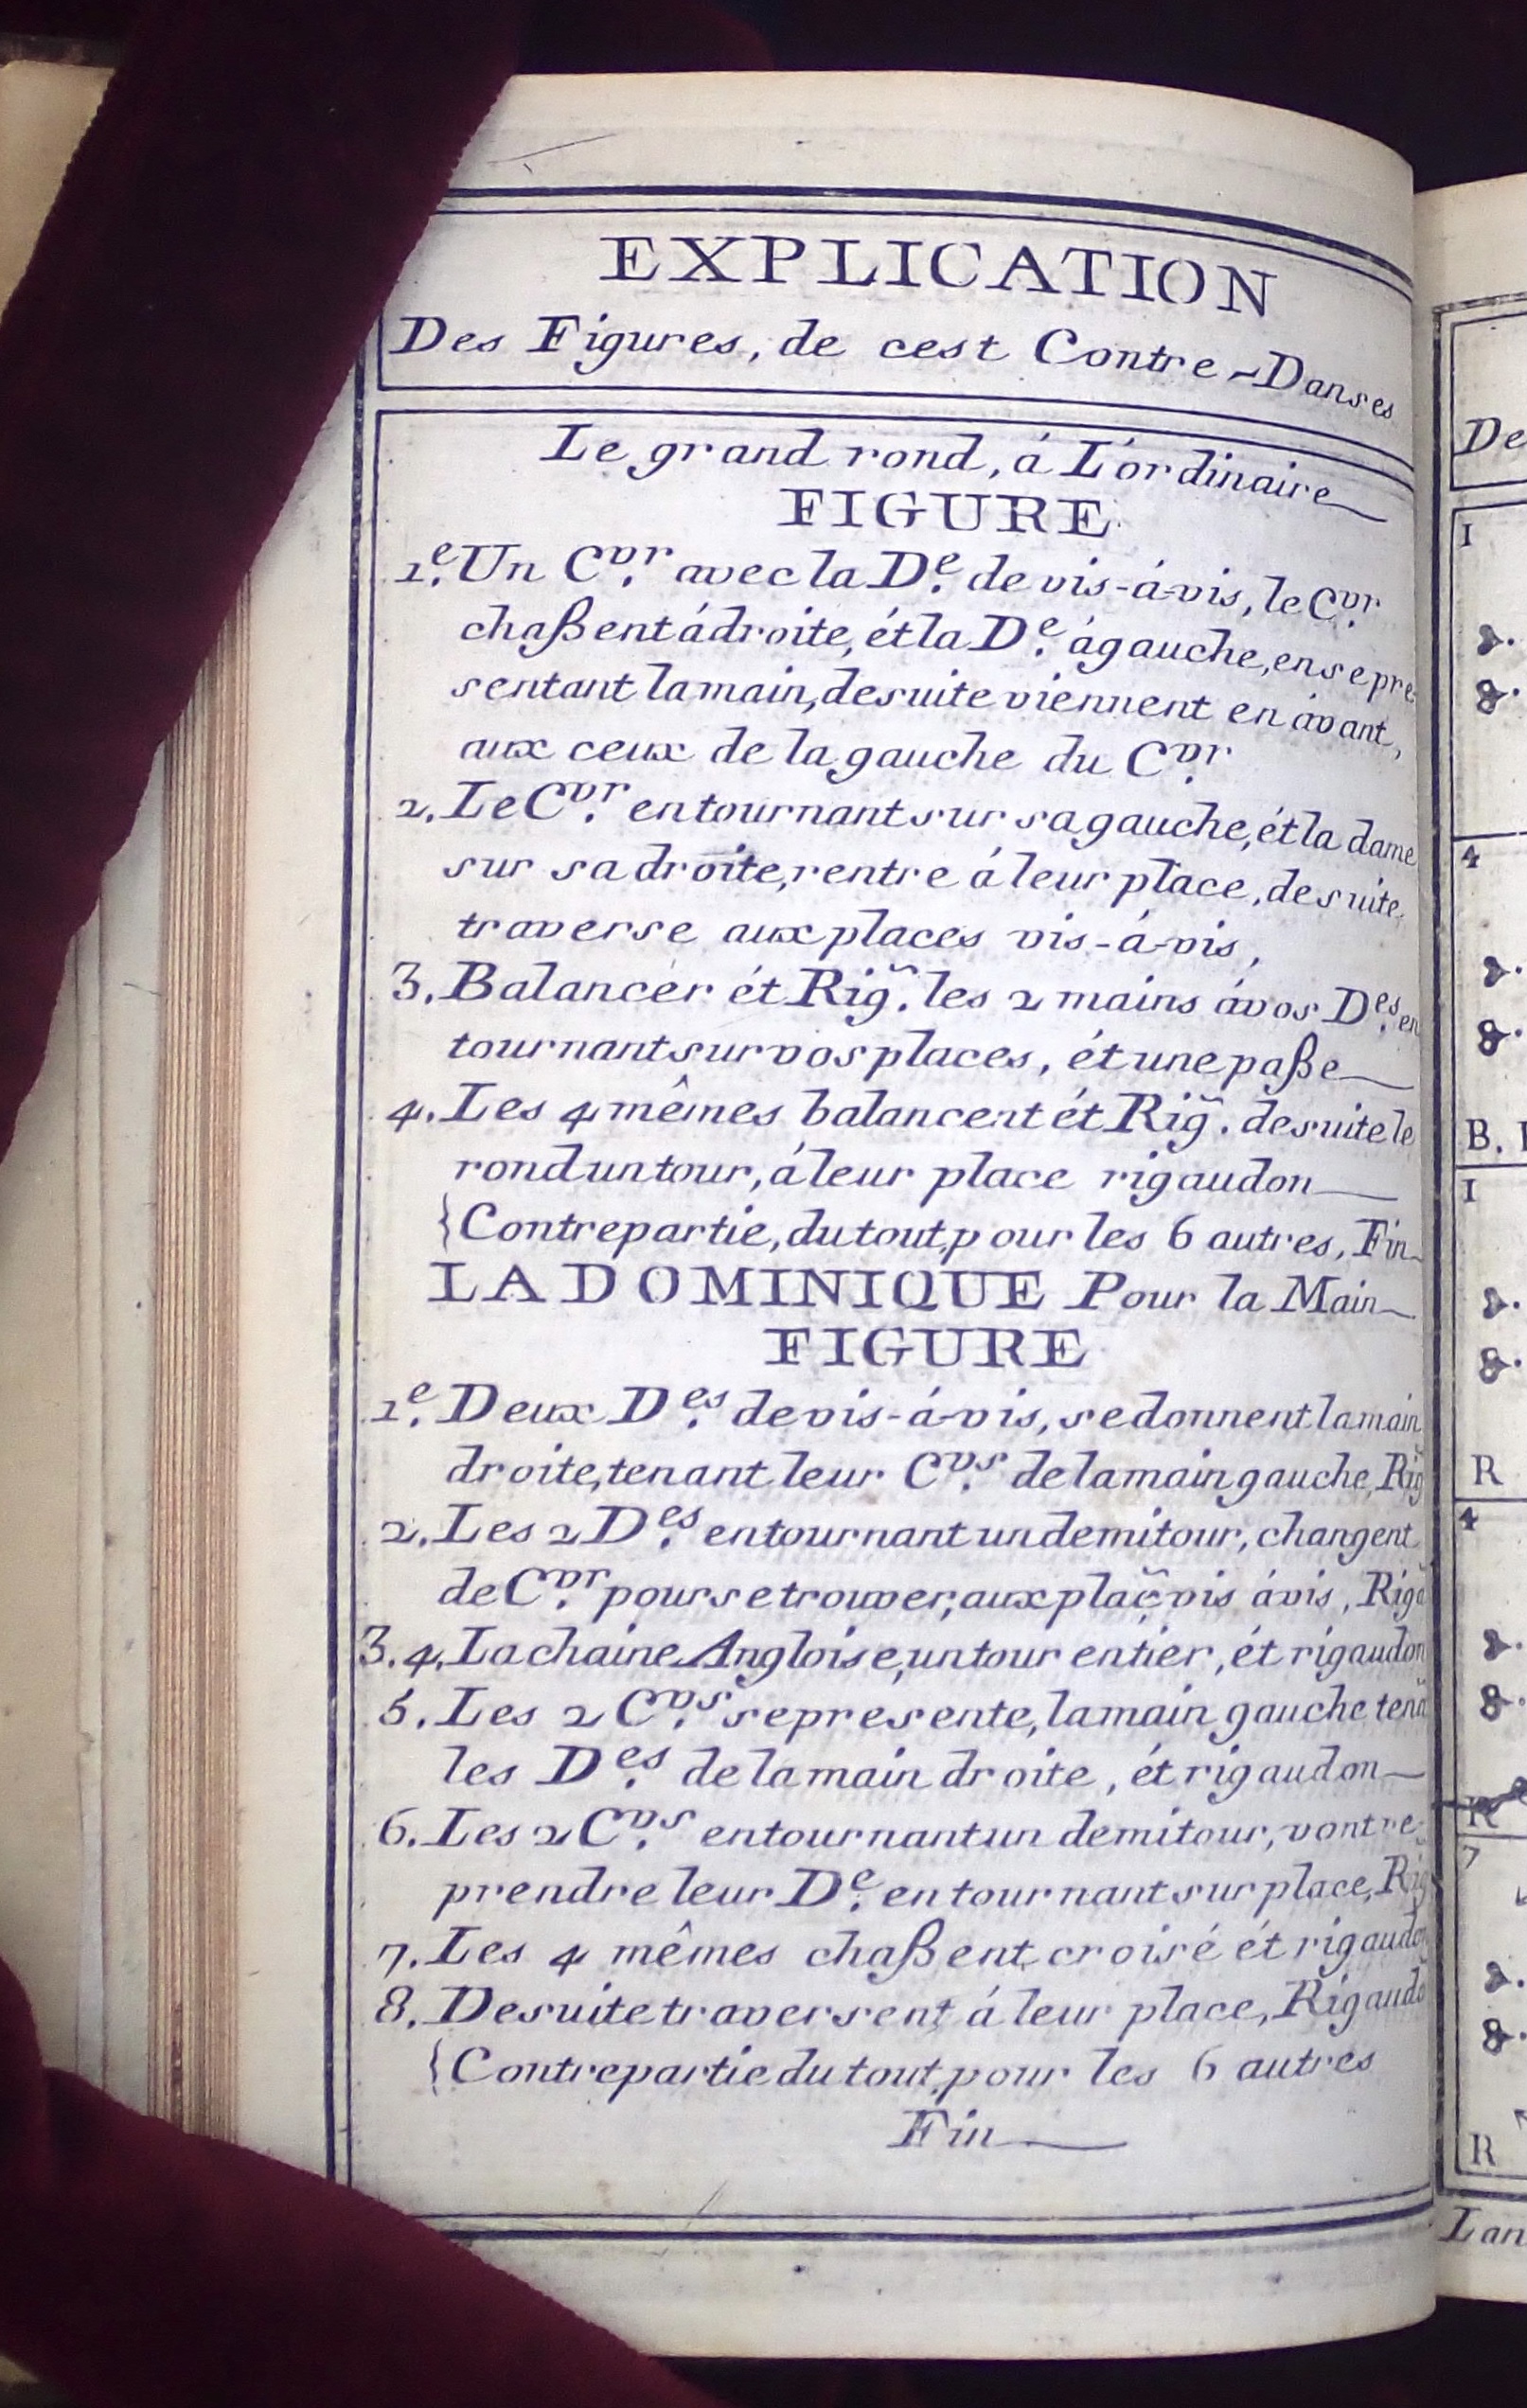 EXPLICATION
Des Figures, de cest Contre-Danses
Le grand rond, á L'ordinaire
FIGURE
1.e Un C.vr avec la D.e de vis-á-vis, le C.vr
chaßent á droite, ét la D.e á gauche, en se pre-
sentant la main, de suite viennent en ávant,
aux ceux de la gauche du C.vr
2. Le C.vr en tournant sur sa gauche, ét la dame
sur sa droite, rentre á leur place, de suite,
traverse aux places vis-á-vis,
3. Balancér ét Rig̃. les 2 mains ávos D.es en
tournant sur vos places, ét une paße
4. Les 4 mêmes balancent ét Rig̃. de suite le
rond un tour, á leur place rigaudon
{Contrepartie, du tout, pour les 6 autres, Fin
LA DOMINIQUE Pour la Main
FIGURE
1.e Deux D.es de vis-á-vis, se donnent la main
droite, tenant leur C.vs de la main gauche, Rig
2. Les 2 D.es en tournant un demi tour, changent
de C.vr pour se trouver, aux plac̃ vis ávis, Rig
3. 4. La chaine Angloise, un tour entier, ét rigaudon
5. Les 2 C.vs se presente, la main gauche tenã
les D.es de la main droite, ét rigaudon
6. Les 2 C.vs en tournant un demi tour, vont re-
prendre leur D.e en tournant sur place, Rig
7. Les 4 mêmes chaßent croisé ét rigaudon
8. De suite traversent á leur place, Rigaudõ
{Contrepartie du tout, pour les 6 autres
Fin
De
1
4
B.
1
R
4
R
7
R
Lan